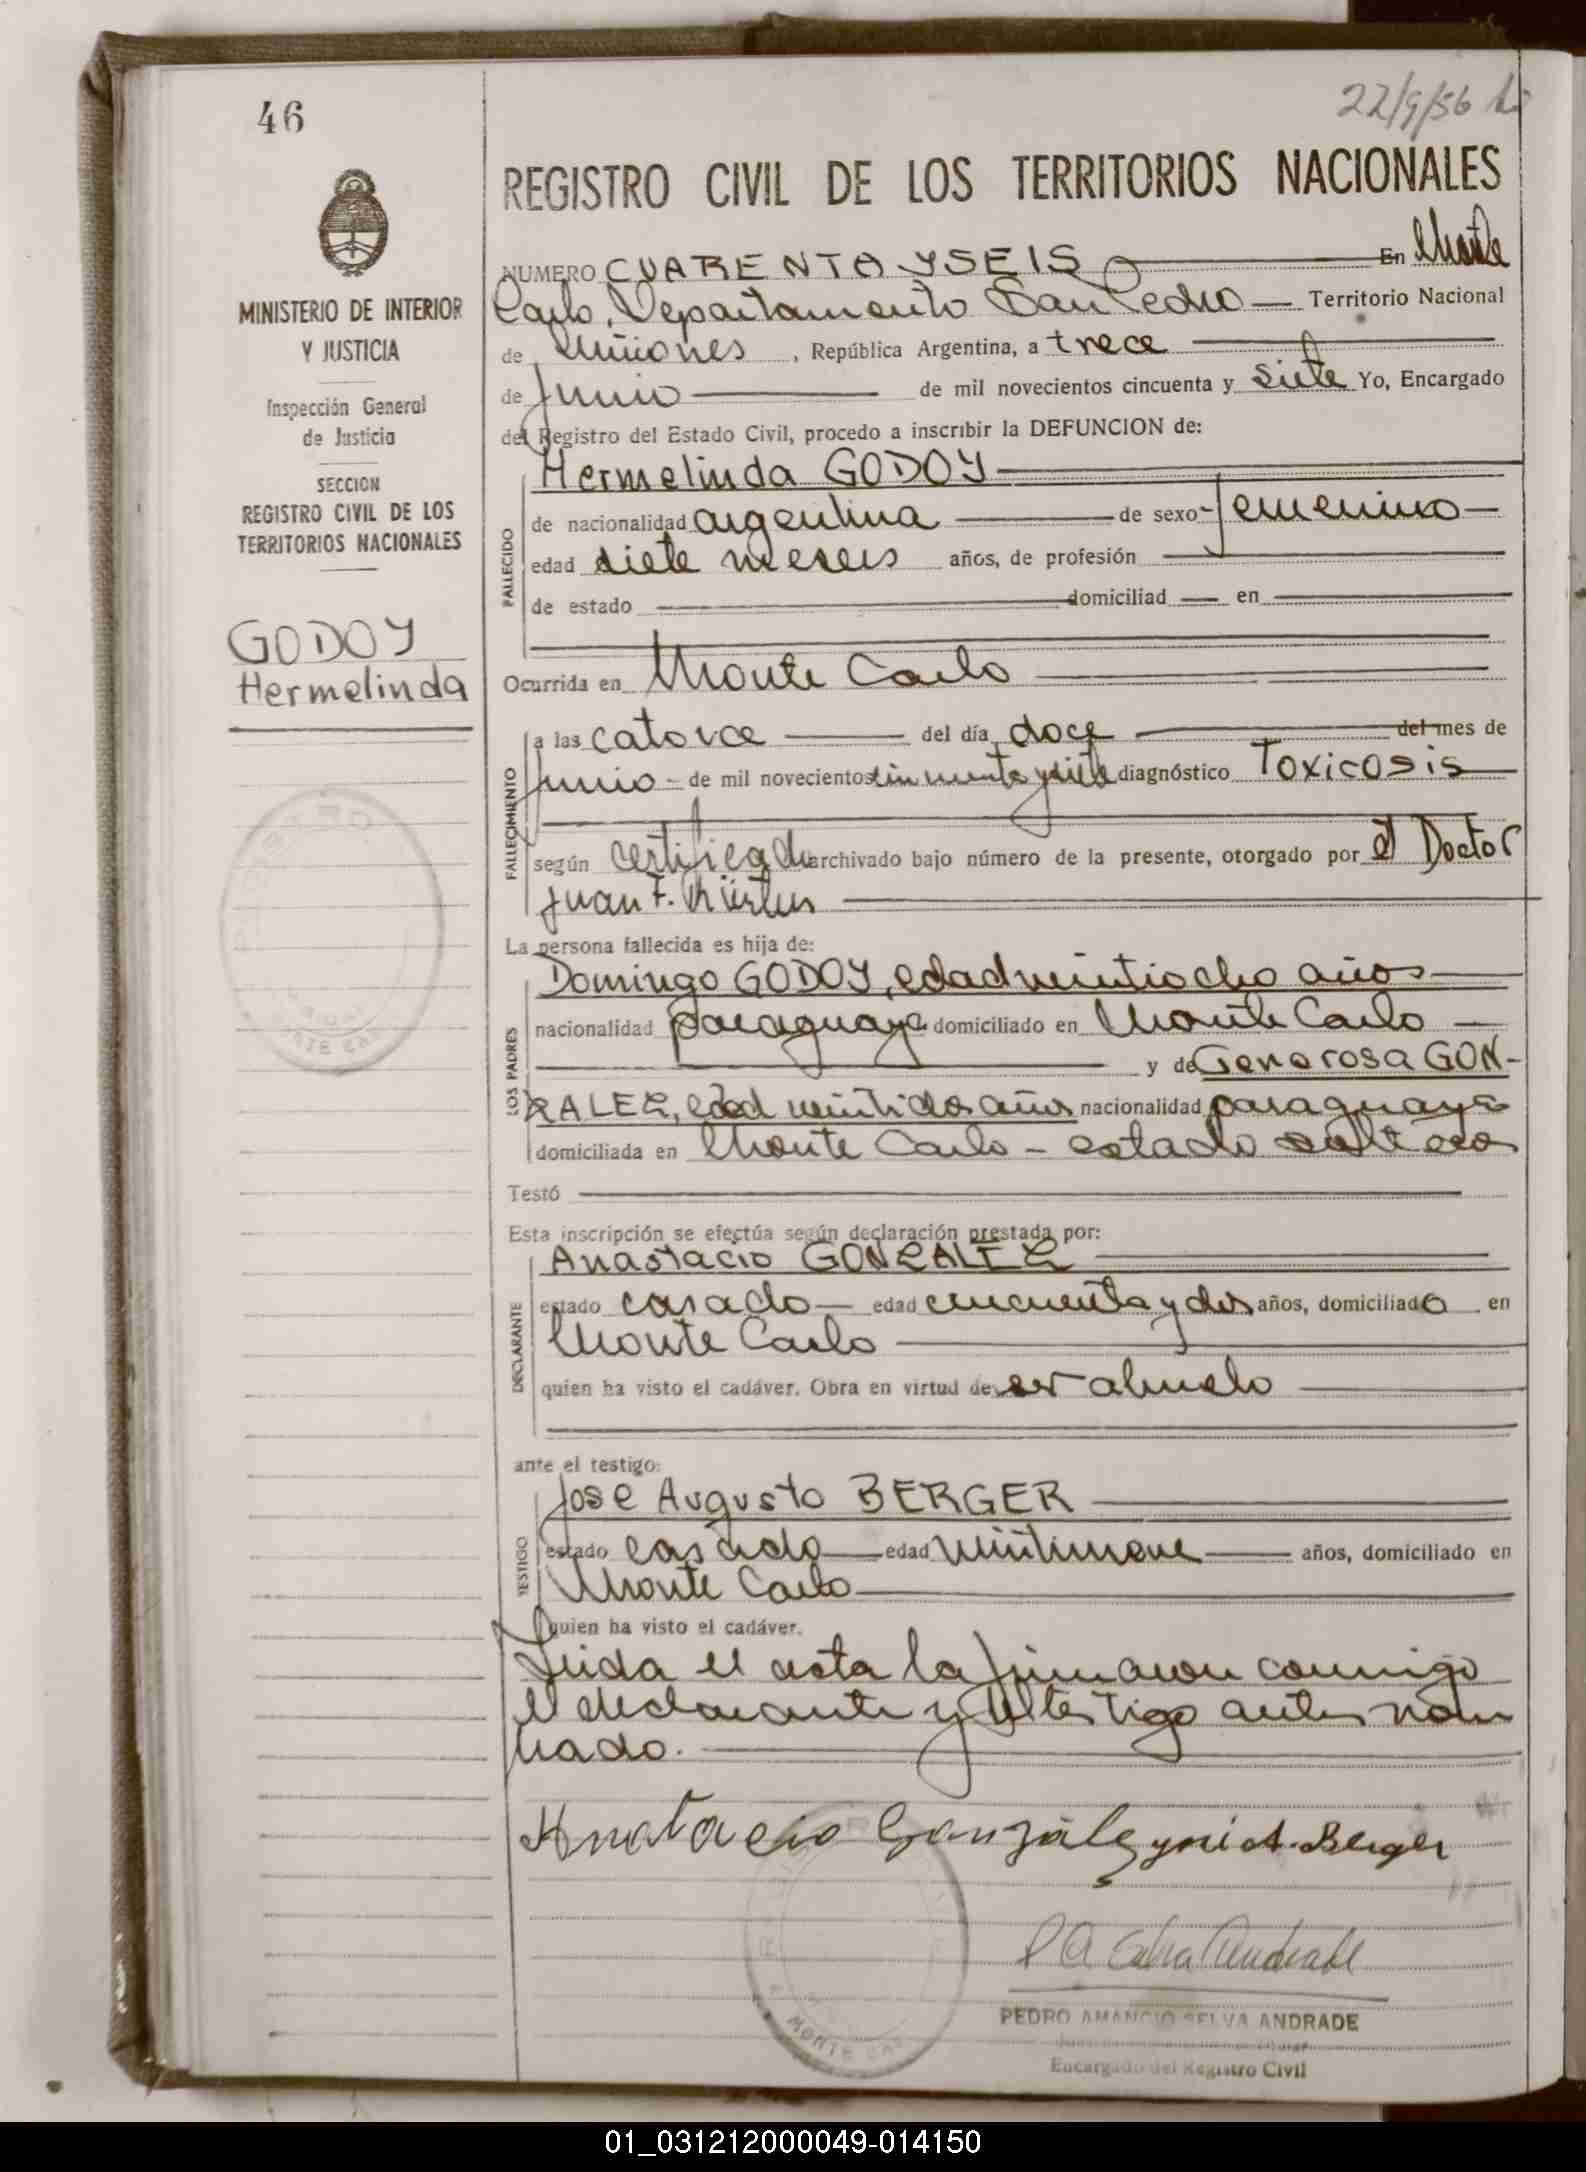 46
22/9/56
MINISTERIO DE INTERIOR
Y JUSTICIA
Inspección General
de Justicia
SECCION
REGISTRO CIVIL DE LOS
TERRITORIOS NACIONALES
GODOY
Hermelinda
REGISTRO CIVIL DE LOS TERRITORIOS NACIONALES
NUMERO CUARENTA Y SEIS En Monte
Carlo, Departamento San Pedro Territorio Nacional
de Misiones, República Argentina, a trece
de Junio de mil novecientos cincuenta y siete Yo, Encargado
del Registro del Estado Civil, procedo a inscribir la DEFUNCION de:
FALLECIDO
Hermelinda GODOY
de nacionalidad argentina de sexo femenino
edad siete meses años, de profesión
de estado domiciliad en
Ocurrida en Monte Carlo
FALLECIMIENTO
a las catorce del día doce del mes de
Junio de mil novecientos cincuenta y siete diagnóstico Toxicosis
según certificado archivado bajo número de la presente, otorgado por el Doctor
Juan F.
La persona fallecida es hija de:
LOS PADRES
Domingo GODOY, edad veintiocho años
nacionalidad paraguaya domiciliado en Monte Carlo
y de Generosa GON-
ZALEZ, edad veintidos años nacionalidad paraguaya
domiciliada en Monte Carlo - estado solteros
Testó
Esta inscripción se efectúa según declaración prestada por:
DECLARANTE
Anastacio GONZALEZ
estado casado edad cincuenta y dos años, domiciliado en
Monte Carlo
quien ha visto el cadáver. Obra en virtud de ser abuelo
ante el testigo:
TESTIGO
Jose Augusto BERGER
estado casado edad veintinueve años, domiciliado en
Monte Carlo
quien ha visto el cadáver.
Leida el acta la firmaron conmigo
el declarante y el testigo antes nom
brado.
Anatacio González José A. Berger
MONTE CAR
PEDRO AMANCIO SELVA ANDRADE
Encargado del Registro Civil
01_031212000049-014150